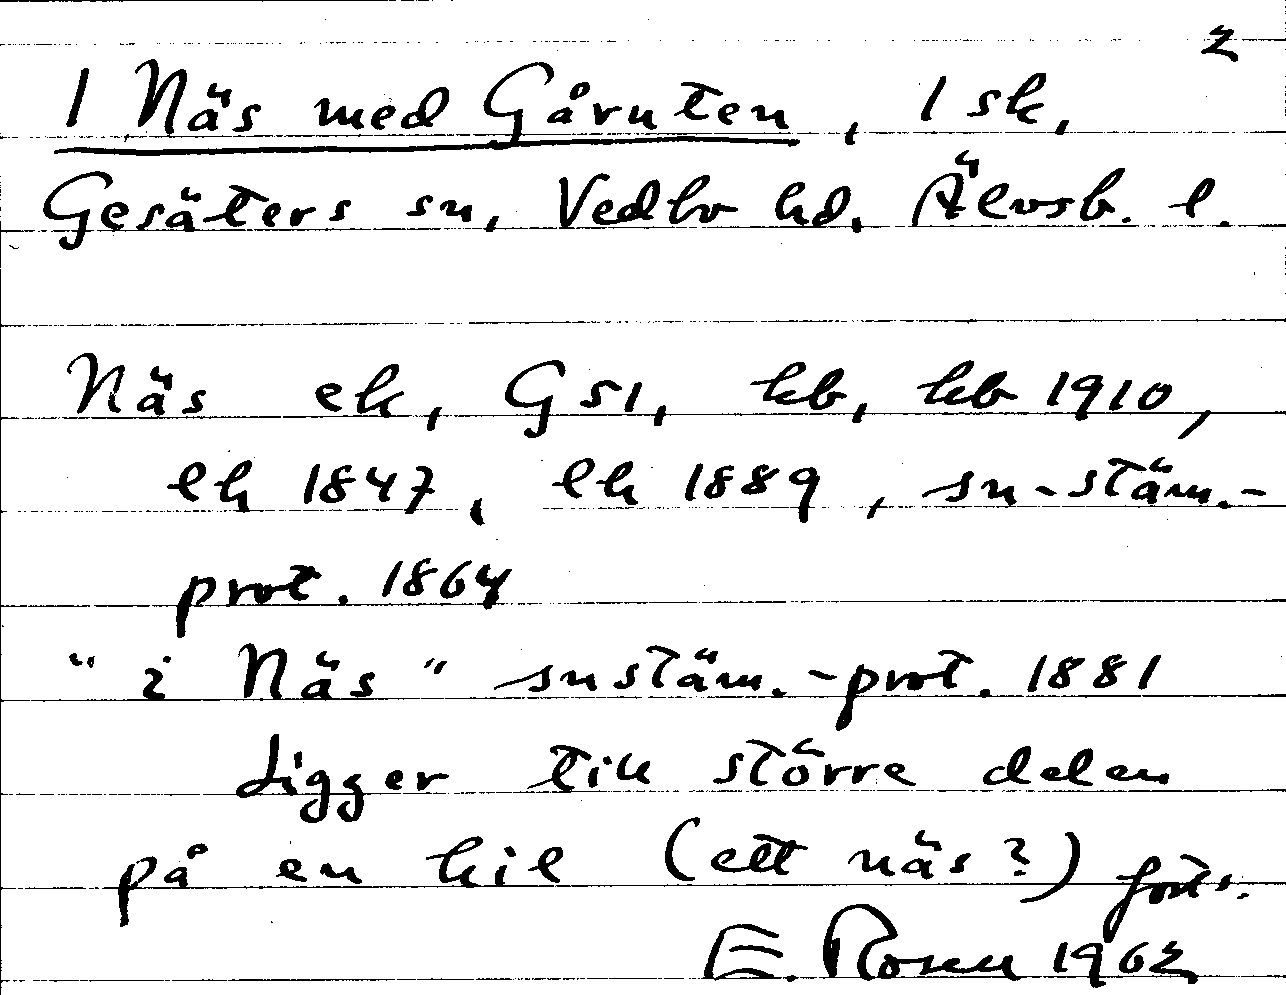 2
1 Näs med Gåruten, 1 sk,
Gesäters sn, Vedbo hd, Älvsb. l.
Näs ek, G51, kb, kb 1910,
lh 1847, lh 1889, sn-stäm.-
prot. 1864
"i Näs" snstäm.-prot. 1881
Ligger till större delen
på en kil (ett näs?) forts.
E. Rosen 1962